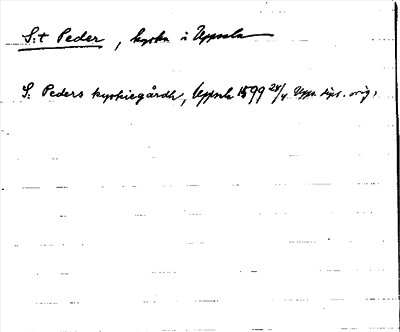 S:t Peder, kyrka i Uppsala
S: Peders kyrkiegårdh, Uppsala 1599 24/4 Upps. dipl. orig.